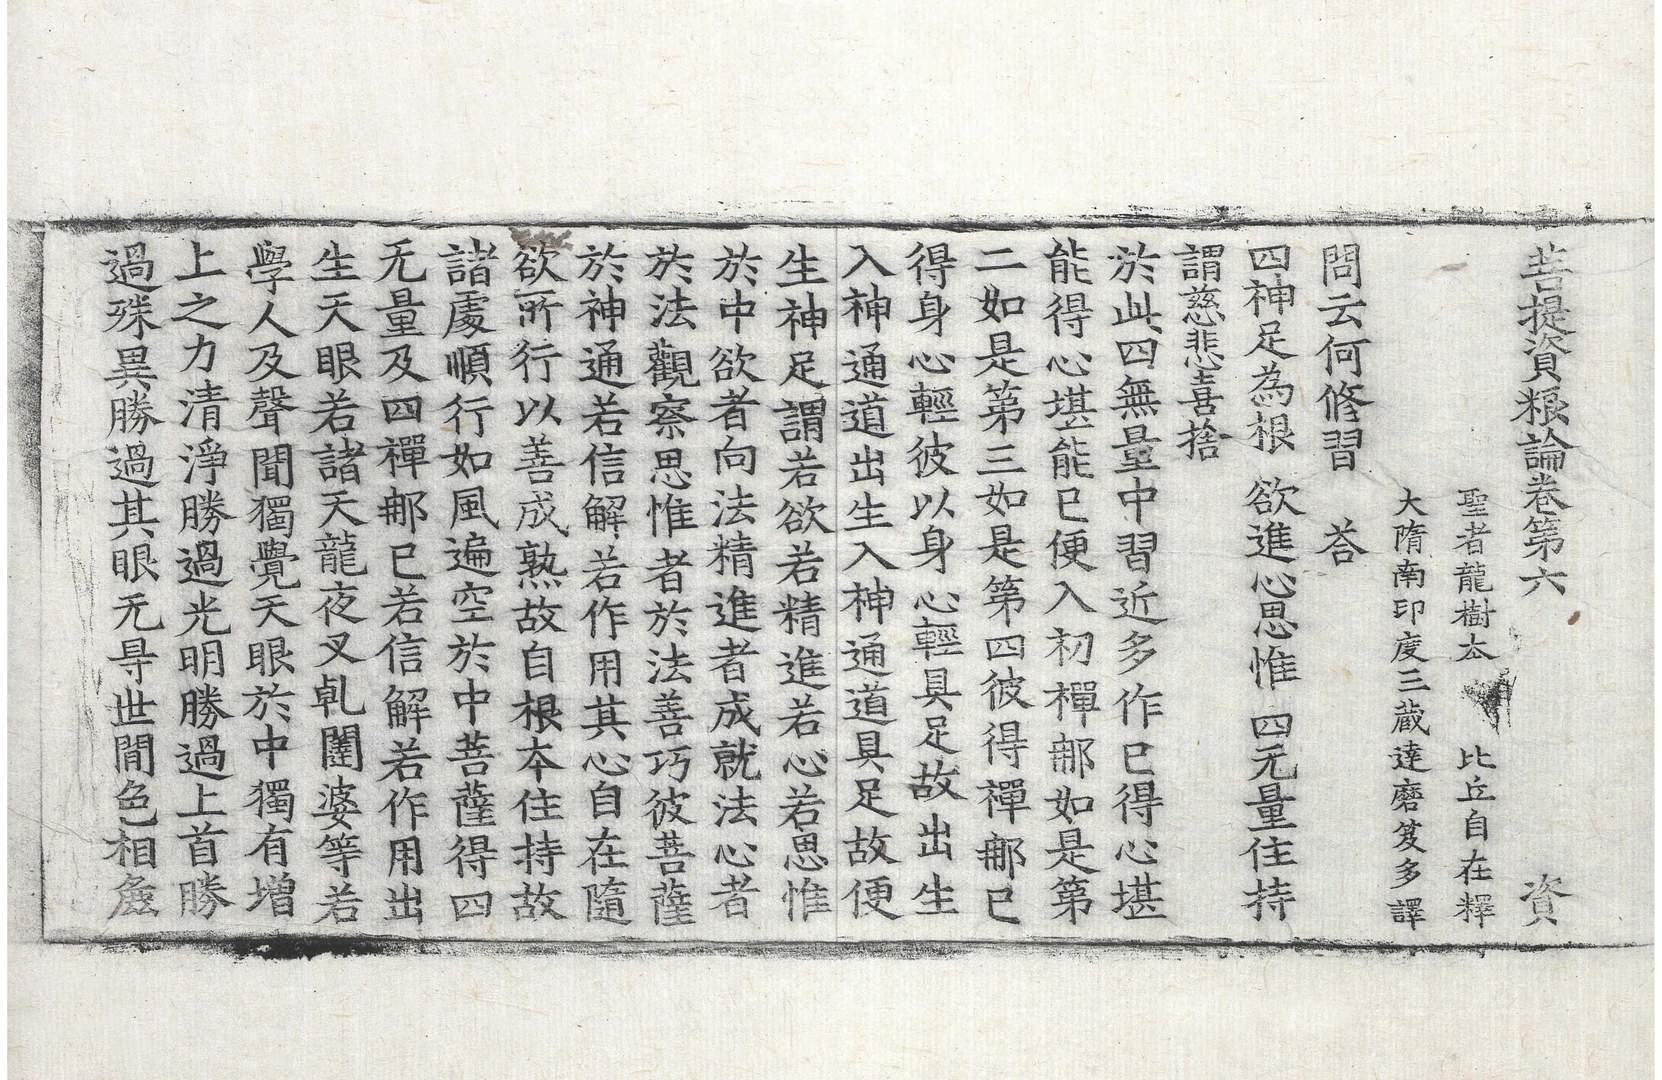 菩提資粮論卷第六　資
聖者龍樹夲　比丘自在釋
大隋南印度三藏達磨笈多譯
問云何修習　荅
四神足為根　欲進心思惟　四无量住持
謂慈悲喜捨
於此四無量中習近多作已得心堪
能得心堪能已便入初禪𨙻如是第
二如是第三如是第四彼得禪𨙻已
得身心輕彼以身心輕具足故出生
入神通道出生入神通道具足故便
生神足謂若欲若精進若心若思惟
於中欲者向法精進者成就法心者
於法觀察思惟者於法善巧彼菩薩
於神通若信解若作用其心自在隨
欲所行以善成熟故自根夲住持故
諸處順行如風遍空於中菩薩得四
无量及四禪𨙻已若信解若作用出
生天眼若諸天龍夜叉乹闥婆等若
學人及聲聞獨覺天眼於中獨有增
上之力清淨勝過光明勝過上首勝
過殊異勝過其眼无㝵世間色相麁